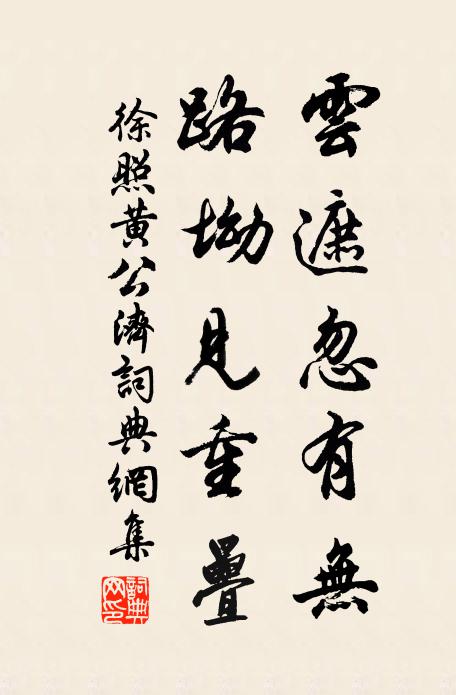 雲遮忽有無
路坳見重疊
徐照黄公濟詞典網集
詞典网印